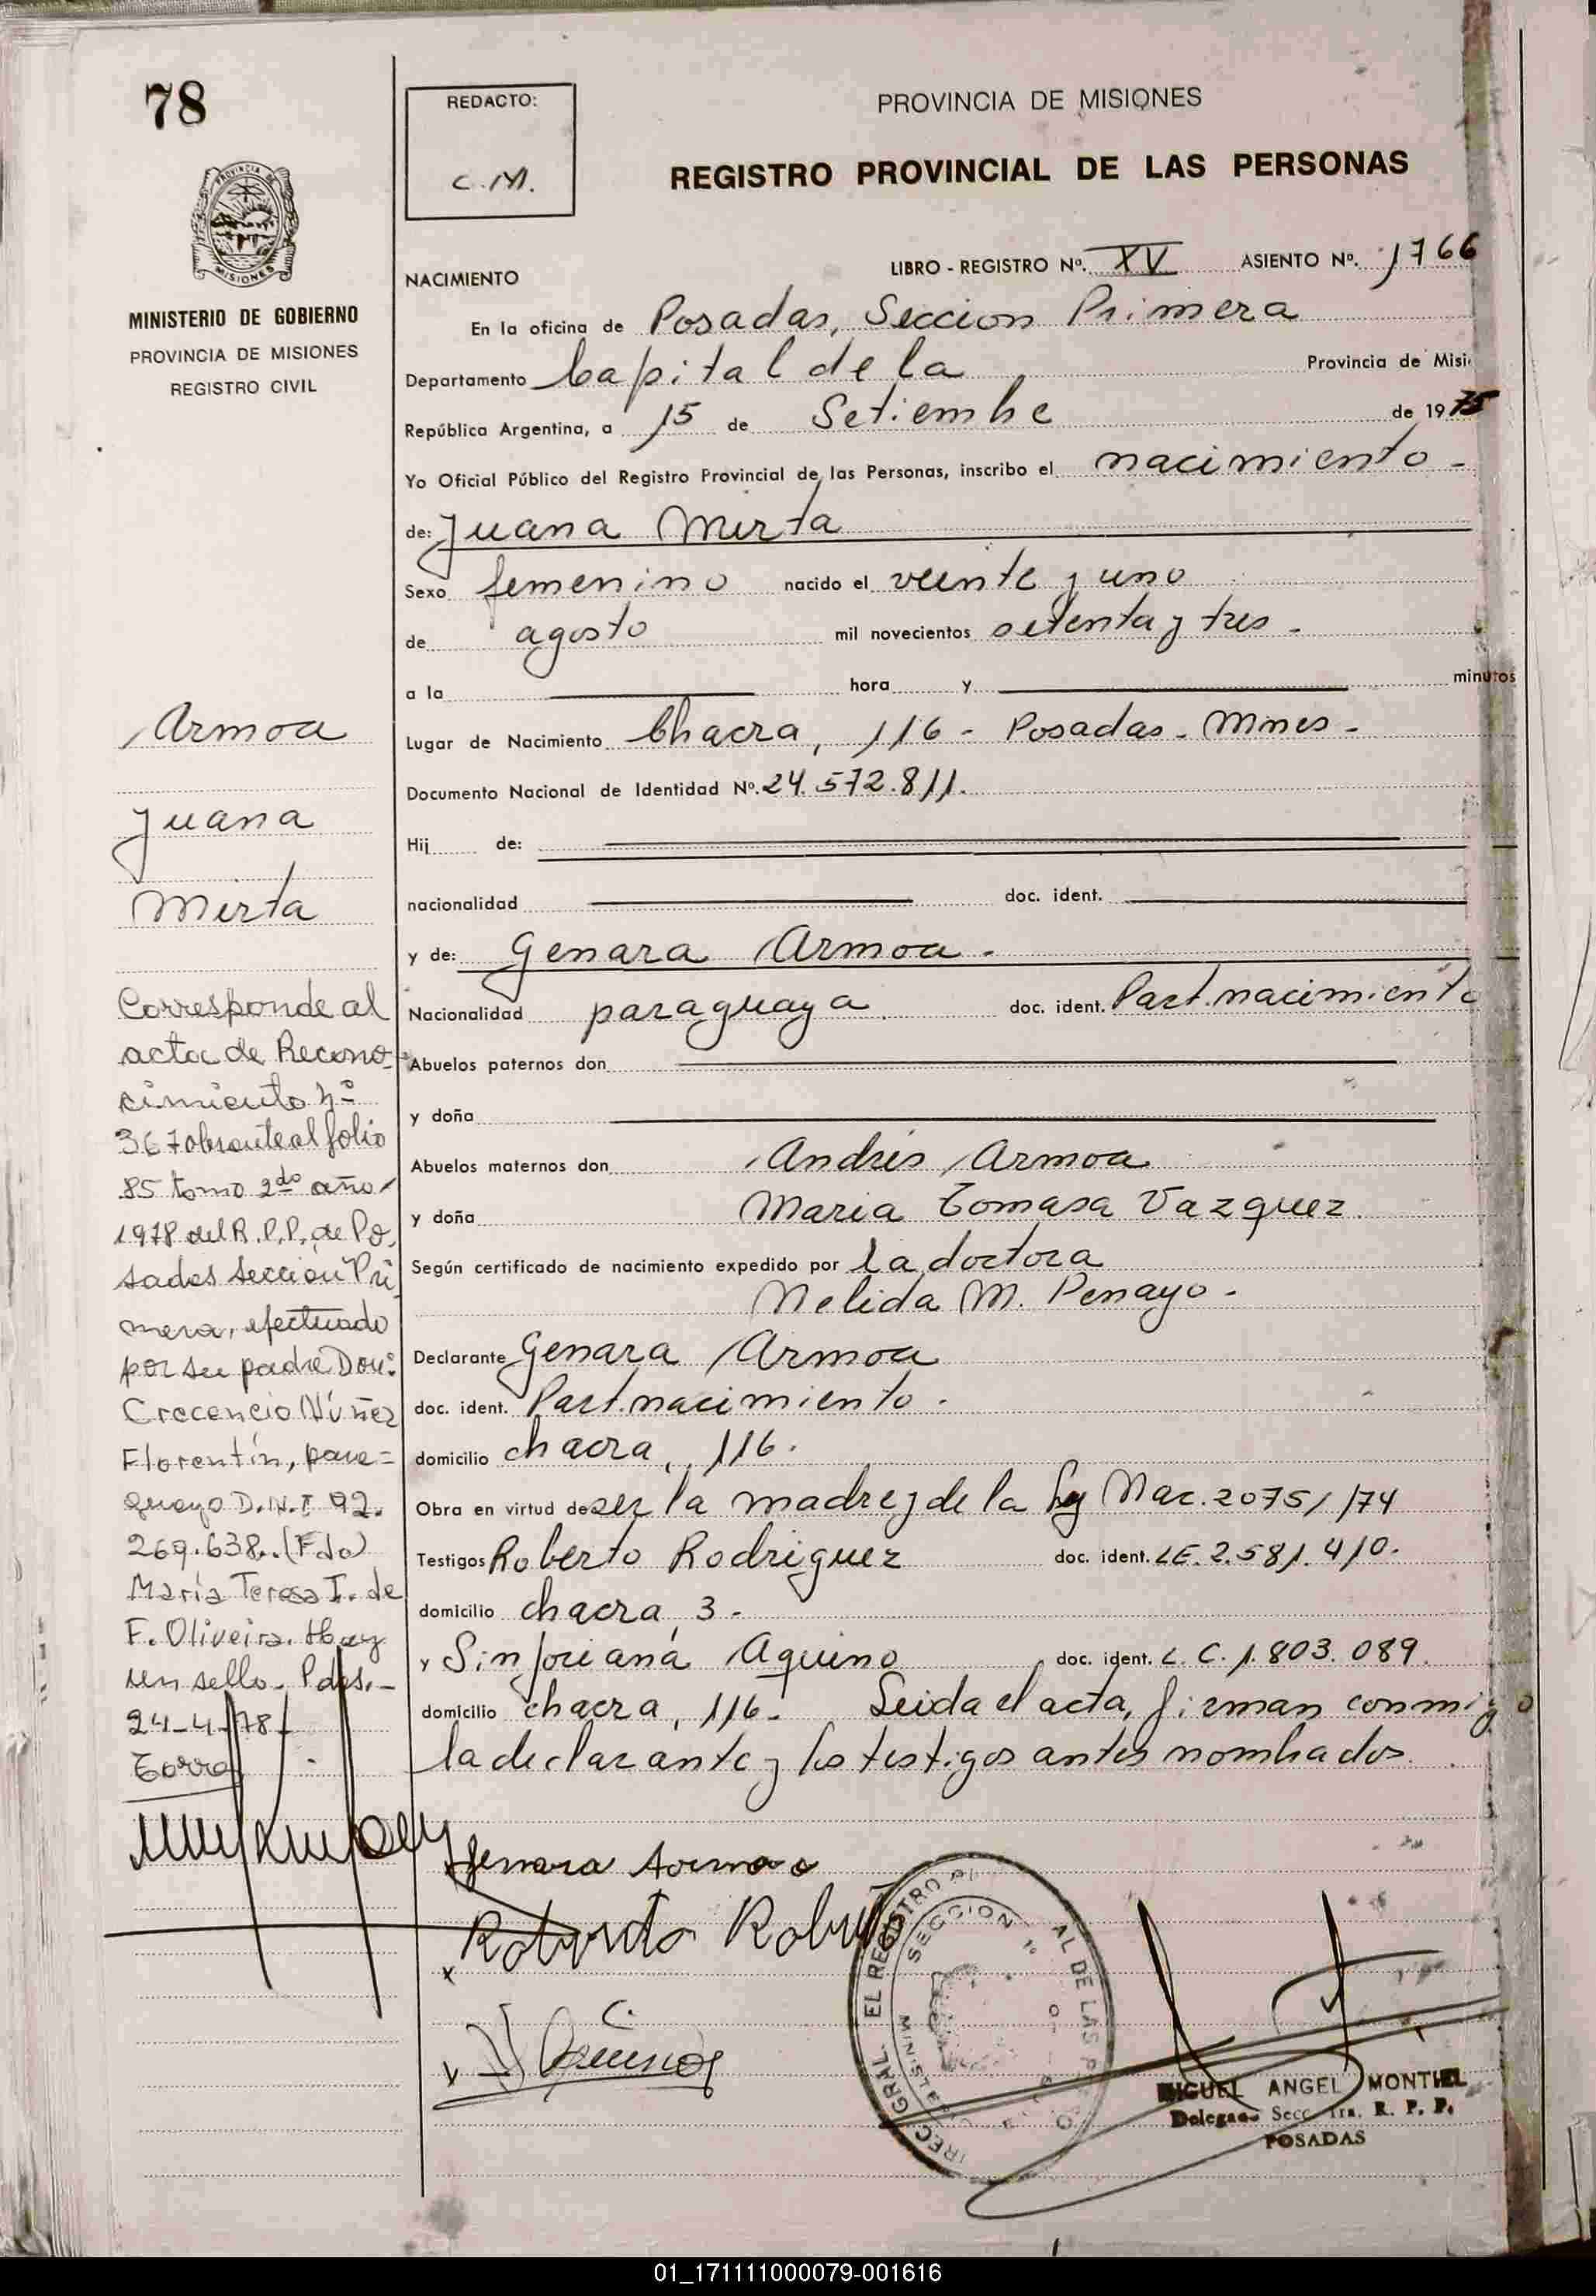 78
REDACTO:
C.M.
PROVINCIA DE MISIONES
REGISTRO PROVINCIAL DE LAS PERSONAS
MISIONES
MINISTERIO DE GOBIERNO
PROVINCIA DE MISIONES
REGISTRO CIVIL
LIBRO - REGISTRO Nº. XV ASIENTO Nº. 1766
NACIMIENTO
En la oficina de Posadas, Seccion Primera
Departamento Capital de la Provincia de Misi
República Argentina, a 15 de Setiembre de 1975
Yo Oficial Público del Registro Provincial de las Personas, inscribo el nacimiento -
de: Juana Mirta
Sexo femenino nacido el veinte y uno
de agosto mil novecientos setenta y tres -
a la hora y minutos
Lugar de Nacimiento Chacra, 116 - Posadas - Mnes -
Documento Nacional de Identidad Nº. 24.572.811.
Hij de:
nacionalidad doc. ident.
y de: Genara Armoa -
Nacionalidad paraguaya doc. ident. Part. nacimiento
Abuelos paternos don
y doña
Abuelos maternos don Andrés Armoa
y doña Maria Tomasa Vazquez
Según certificado de nacimiento expedido por la doctora
Nelida M. Penayo -
Declarante Genara Armoa
doc. ident. Part. nacimiento -
domicilio chacra, 116.
Obra en virtud de ser la madre y de la Ley Nac. 20751/74
Testigos Roberto Rodriguez doc. ident. LE. 2.581.410.
domicilio chacra, 3 -
y Sinforiana Aquino doc. ident. L. C. 1.803.089.
domicilio chacra, 116 - Leida el acta, firman conmigo
la declarante y los testigos antes nombrados.
Armoa
Juana
Mirta
Corresponde al
acta de Recono-
cimiento Nº
367 obrante al folio
85 tomo 2do año
1978 del R.P.P. de Po-
sadas Sección Pri-
mera, efectuado
por su padre Don:
Crecencio Núñez
Florentín, para=
guayo D.N.I 92.
269.638.. (Fdo)
María Teresa I. de
F. Oliveira. Hay
un sello. Pdas.-
24-4-78
Genara Armoa
MIGUEL ANGEL MONTIEL
Delegado Secc. 1ra. R. P. P.
POSADAS
01_171111000079-001616